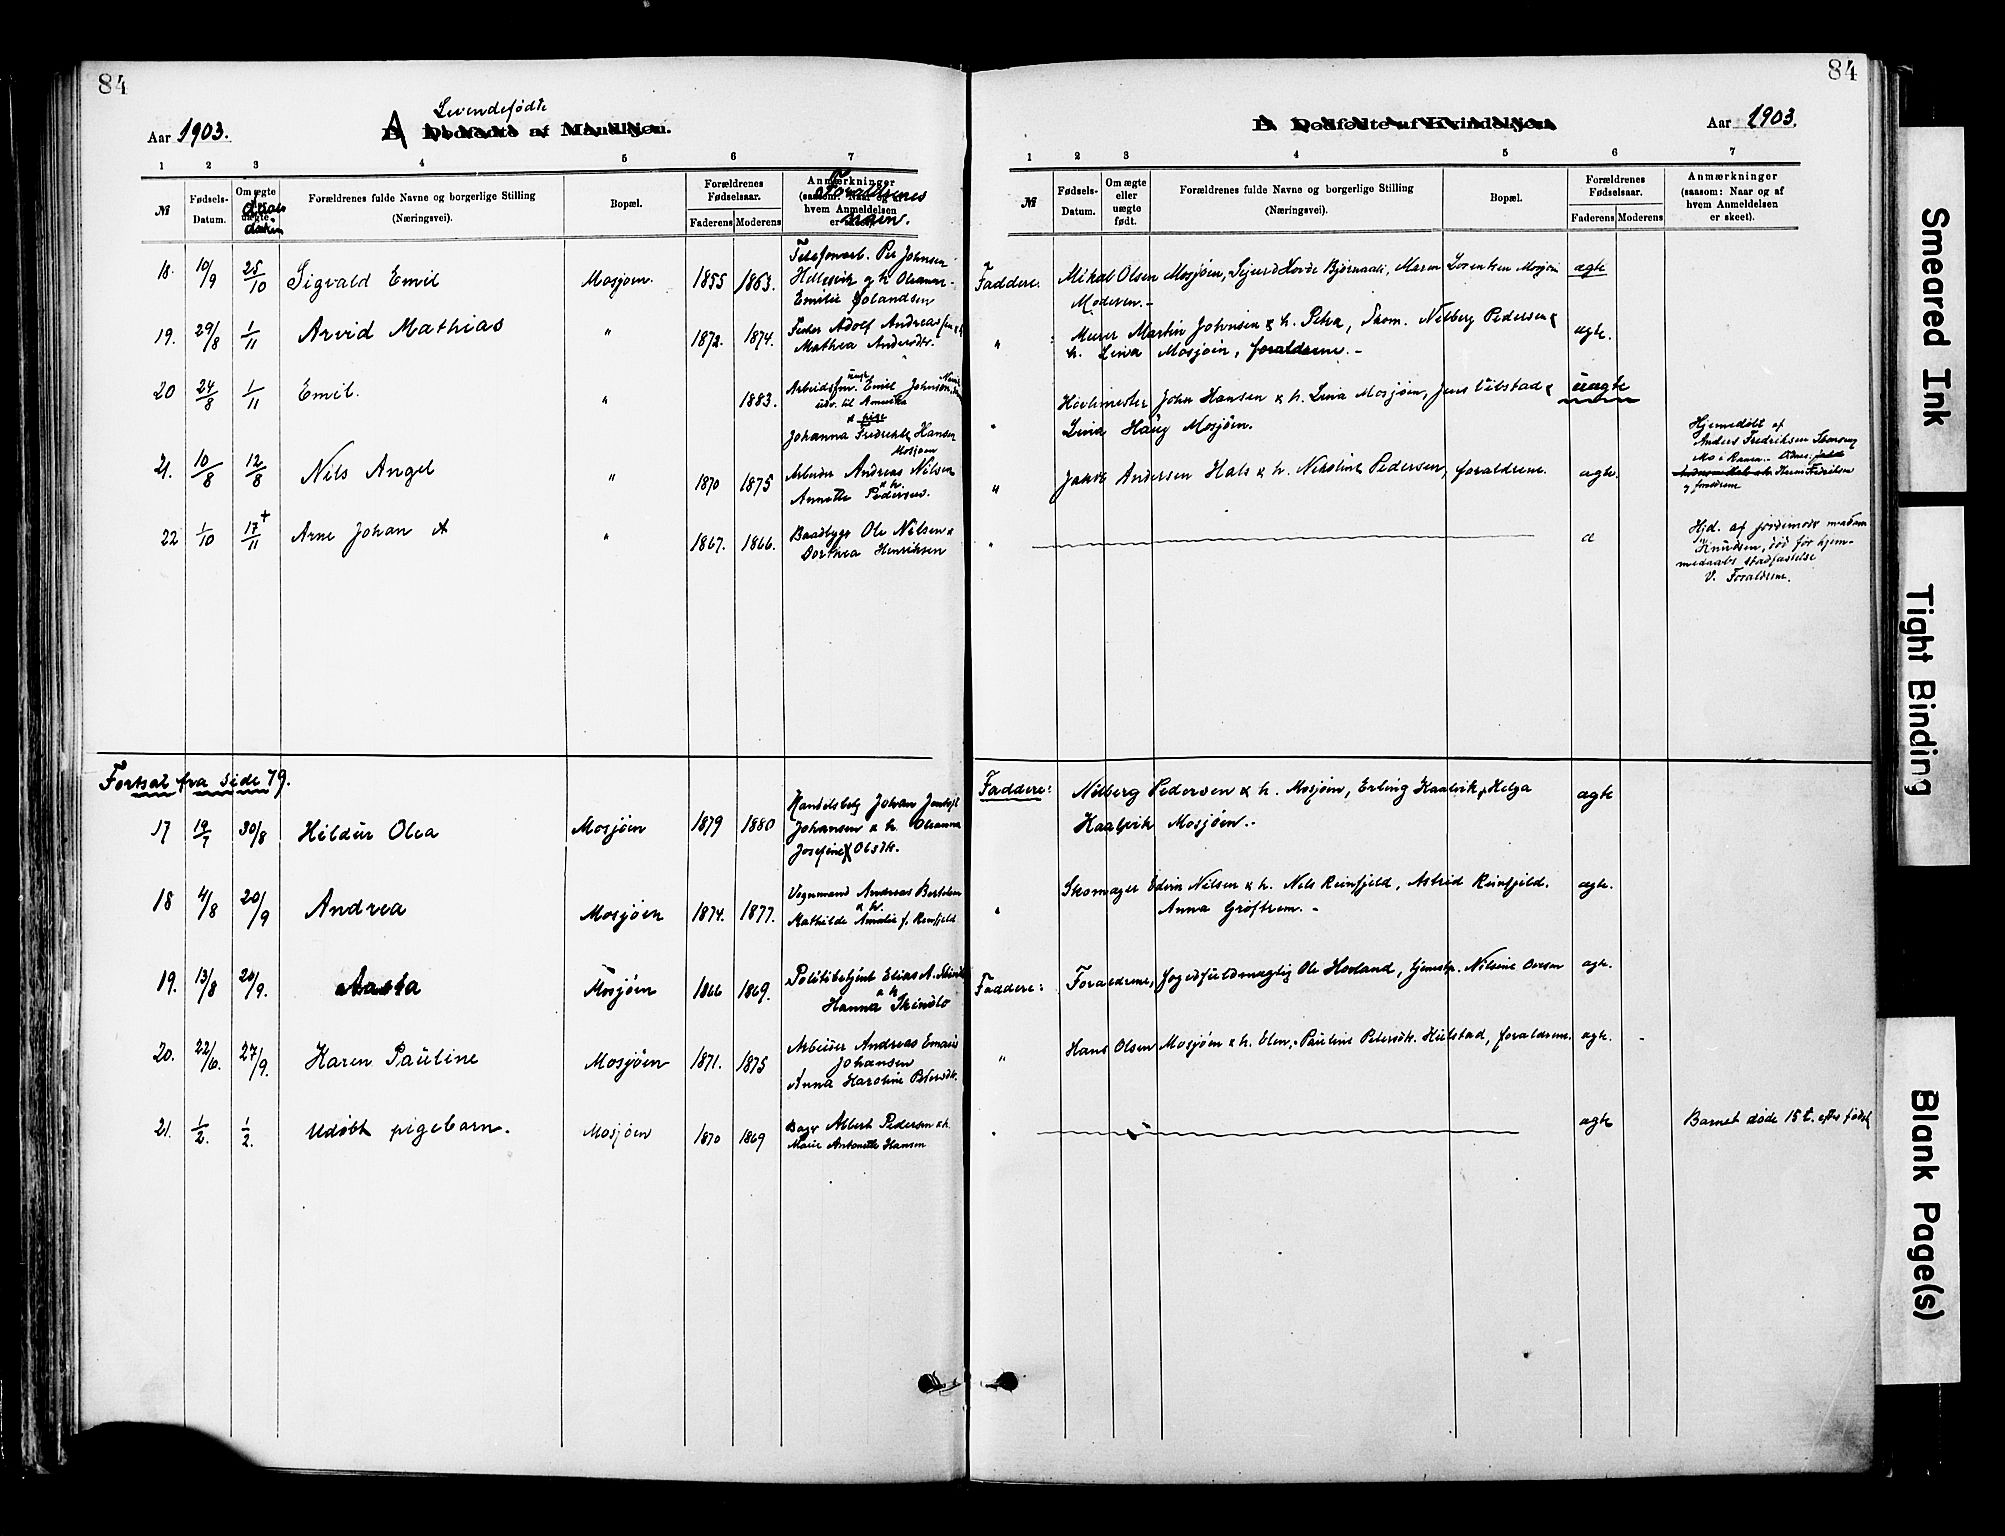 84
Levendefødte
Aar 1903.
A B Dødfødte af Mandkjøn.
1 2 3 4 5 6 7
№
Fødsels-Datum.
Om ægte eller uægte født. Daabsdatum
Forældrenes fulde Navne og borgerlige Stilling (Næringsvei).
Bopæl.
Forældrenes Fødselsaar.
Faderens Moderens
Anmærkninger (saasom: Naar og af hvem Anmeldelsen er skeet). Forældrenes navn.
18. 10/9 25/10 Sigvald Emil Mosjøen. 1855 1863. Telefonarb. Per Johnsen
Hellesvik og h. Oleanna
Emilie Jolandsen
19. 29/8 1/11 Arvid Mathias " 1872. 1874. Fisker Adolf Andreas
Mathea Andersdtr.
20 24/8 1/11 Emil. " 1883. Arbeidsfm. ungk. Emil Johnsen
udv. til Amerika
& pige
Johanna Fredrikke Hansen
Mosjøen
21. 10/8 12/8 Nils Angel " 1870 1875 Arbeider Andreas Nilsen
& h.
Annette Pedersen.
22 1/10 17/11 + Arne Johan " 1867. 1866. Baadbygr Ole Nilsen &
Dorthea Henriksen
Fortsat fra side 79.
17 19/7 30/8 Hildur Olea Mosjøen 1879 1880 Handelsbetj Johan
Johansen & h. Oleanna
Josefine Olsdtr.
18 4/8 20/9 Andrea Mosjøen 1874. 1877. Vognmand Andreas Bertelsen
& h.
Mathilde Amalie f. Reinfjeld
19. 13/8 20/9. Aasta Mosjøen 1866 1869. Politibetjent Elias A. Skindlo
& h
Hanna Skindlo
20. 22/6. 27/9. Karen Pauline Mosjøen 1871. 1875 Arbeider Andreas Emaus
Johansen
Anna Karoline Petersdtr.
21. 1/2. 1/2. Udøbt pigebarn. Mosjøen 1870 1869 Bager Albert Pedersen & h.
Marie Antonette Hansen
84
B Dødfødte af Kvindekjøn.
Aar 1903.
1 2 3 4 5 6 7
№
Fødsels-Datum.
Om ægte eller uægte født.
Forældrenes fulde Navne og borgerlige Stilling (Næringsvei).
Bopæl.
Forældrenes Fødselsaar.
Faderens Moderens
Anmærkninger (saasom: Naar og af hvem Anmeldelsen er skeet).
Faddere. Mikal Olsen Mosjøen, Sigurd Hovde Bjørnaali, Maren Lorentsen Mosjøen ægte
Moderen.
" Murer Martin Johnsen & h. Petra, Skom. Nilberg Pedersen & ægte.
h. Lina Mosjøen, forældrene.
Havnemester John Hansen & h. Lina Mosjøen, Jens Vilstad & uægte
" Lina Haug Mosjøen.
" Jakob Andersen Hals & h. Nikoline Pedersen, forældrene. ægte. Hjemedøbt af
Anders Fredriksen
Mo i Ranen.
Karen Fredriksen
og forældrene
" æ Hjd. af jordemor madam
Knudsen, død før hjem-
medaabs stadfæstelse
V. Forældrene.
Faddere: Nilberg Pedersen & h. Mosjøen, Erling Kaalvik, Helga ægte
Kaalvik Mosjøen.
" Skomager Edvin Nilsen & h. Nils Reinfjeld, Astrid Reinfjeld. ægte.
Anna Grøftrem.
Faddere: Forældrene, fogedfuldmægtig Ole Hovland, tjenestp. Nilsine Oversen ægte.
" Hans Olsen Mosjøen & h. Elen, Pauline Petersdtr. Hulstad, forældrene. ægte.
" ægte Barnet døde 15 t. efter føds.
Smeared Ink
Tight Binding
Blank Page(s)